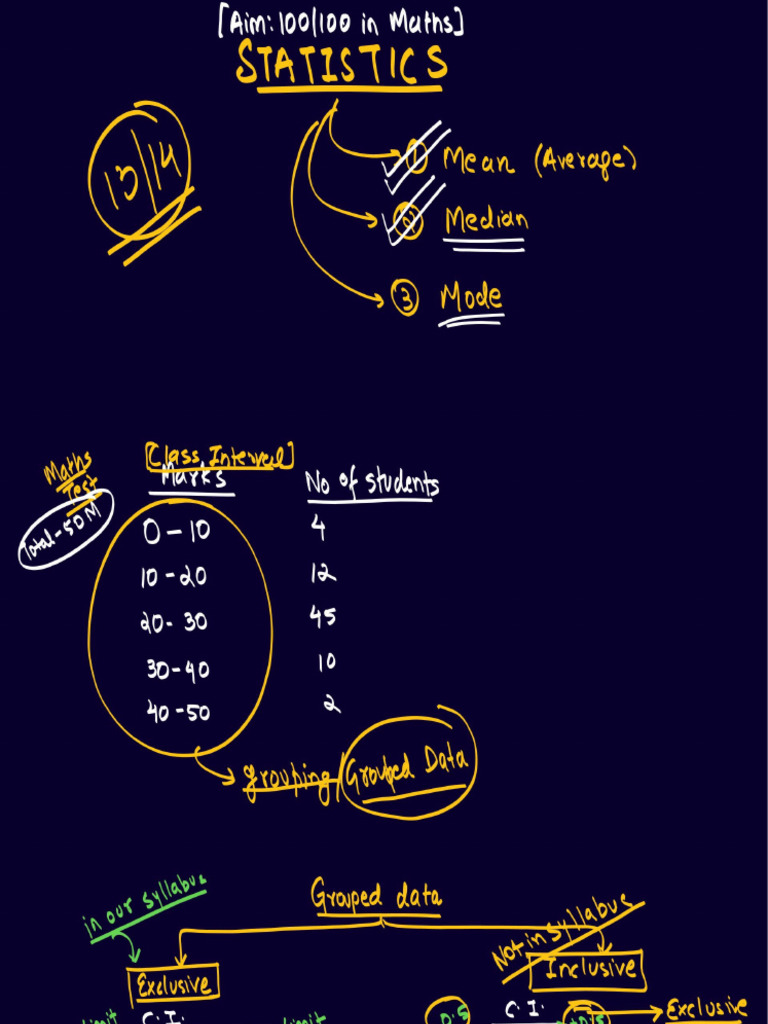 [Aim: 100/100 in Maths]
STATISTICS
13/14
① Mean (Average)
② Median
③ Mode
Maths Test
Total-50M
[Class Interval]
Marks No of students
0-10 4
10-20 12
20-30 45
30-40 10
40-50 2
grouping/Grouped Data
Grouped data
in our syllabus
Not in syllabus
Exclusive
Inclusive
limit C.I. limit 0.5 C.I. +0.5 Exclusive